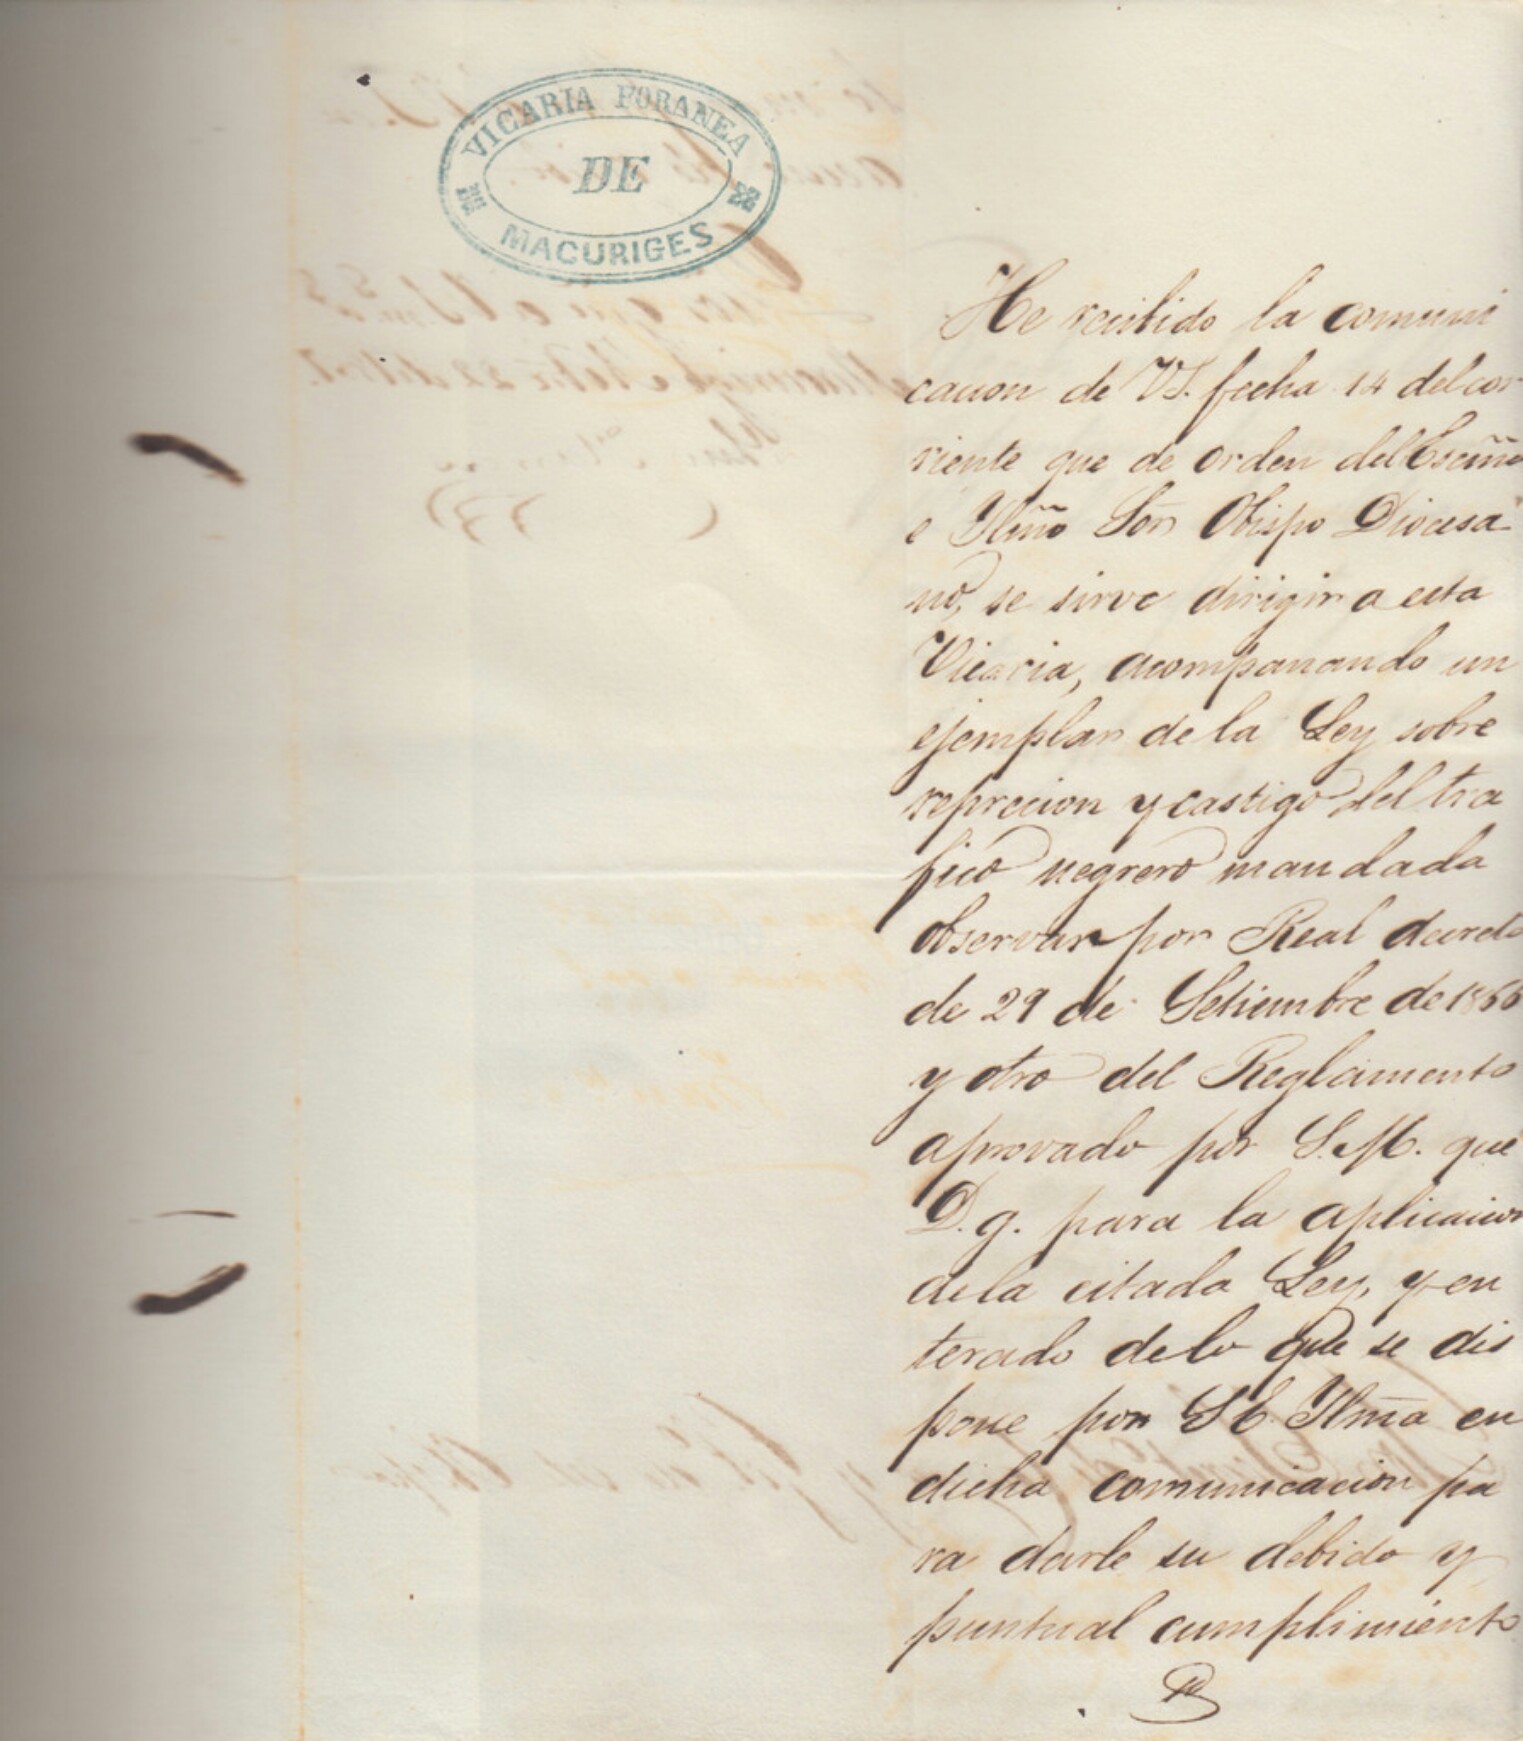 VICARIA FORANEA
DE
MACURIGES
He recibido la comuni
cacion de VS. fecha 14 del cor
riente que de orden del Escmo
e Iltmo Sor Obispo Diocesa
no, se sirve dirigir a esta
Vicaria, acompanando un
ejemplar de la Ley sobre
reprecion y castigo del tra
fico negrero mandada
observar por Real decreto
de 29 de Setiembre de 1866
y otro del Reglamento
aprovado por S. M. que
D. g. para la aplicacion
de la citada Ley, y en
terado de lo que se dis
pone por S. E. Ilma en
dicha comunicacion pa
ra darle su debido y
puntual cumplimiento